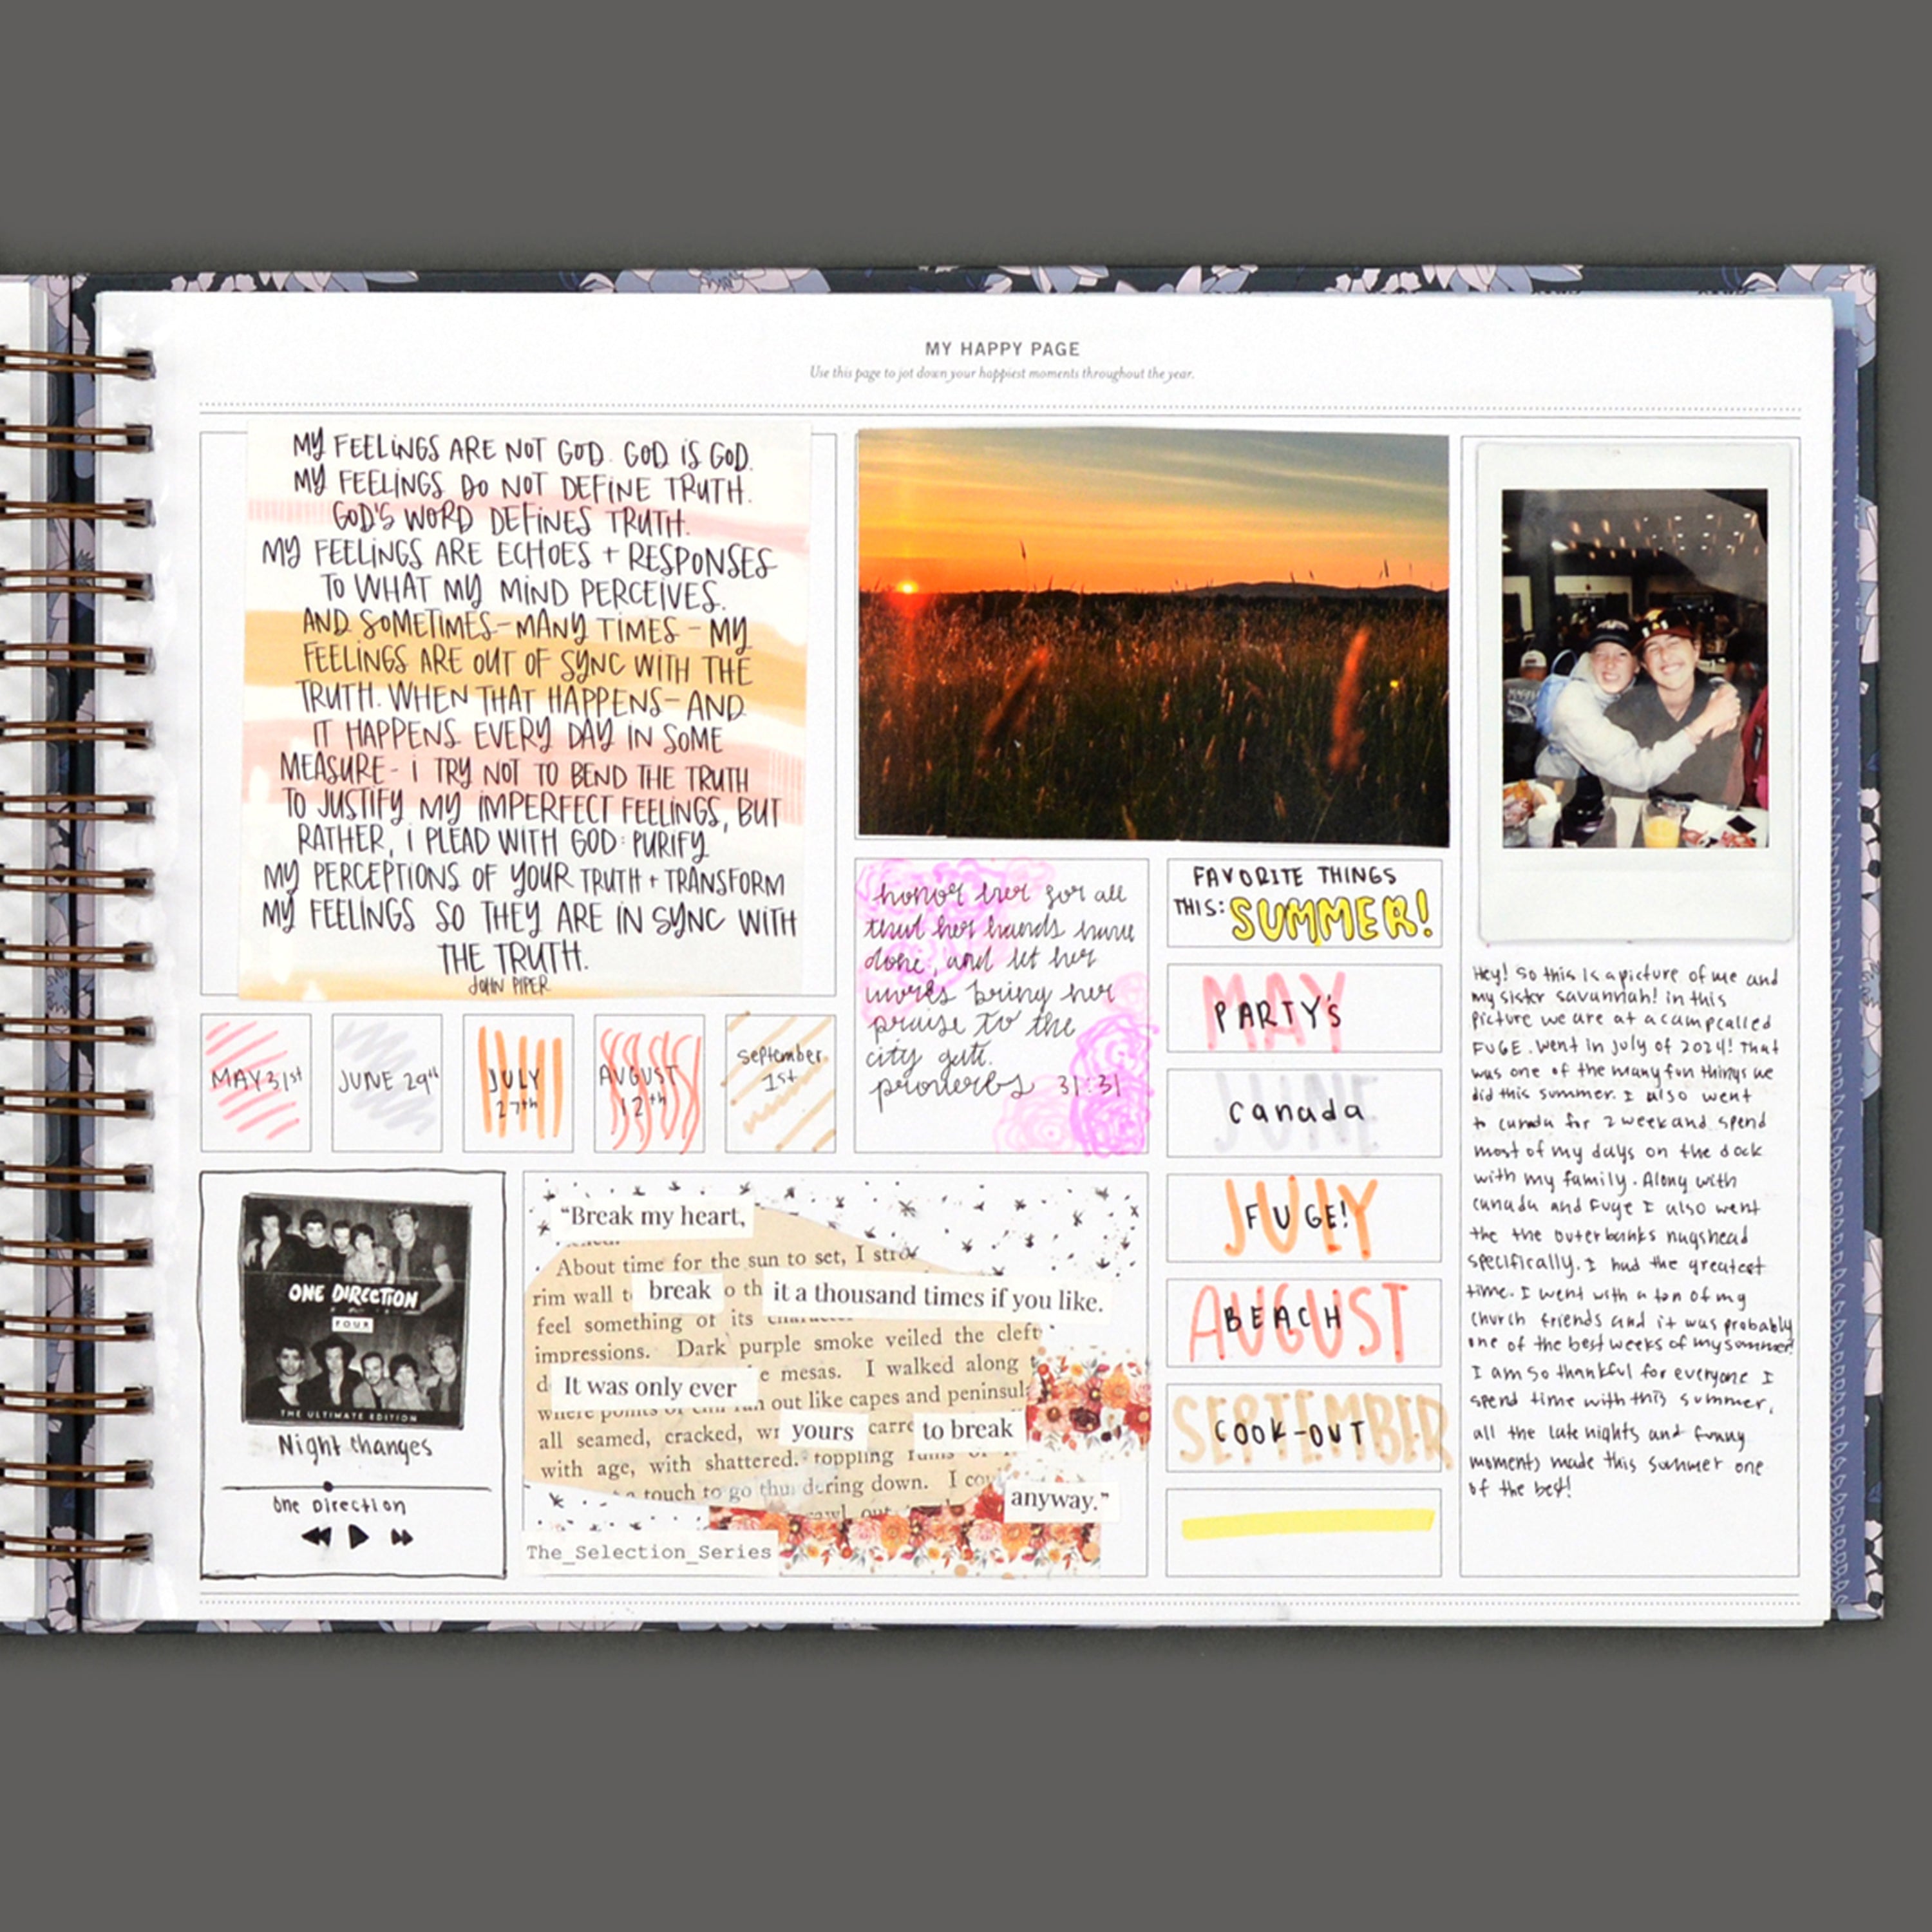 MY HAPPY PAGE
Use this page to jot down your happiest moments throughout the year.
MY FEELINGS ARE NOT GOD. GOD IS GOD.
MY FEELINGS DO NOT DEFINE TRUTH.
GOD'S WORD DEFINES TRUTH.
MY FEELINGS ARE ECHOES + RESPONSES
TO WHAT MY MIND PERCEIVES.
AND SOMETIMES-MANY TIMES - MY
FEELINGS ARE OUT OF SYNC WITH THE
TRUTH. WHEN THAT HAPPENS-AND
IT HAPPENS EVERY DAY IN SOME
MEASURE- I TRY NOT TO BEND THE TRUTH
TO JUSTIFY MY IMPERFECT FEELINGS, BUT
RATHER, I PLEAD WITH GOD: PURIFY
MY PERCEPTIONS OF YOUR TRUTH + TRANSFORM
MY FEELINGS SO THEY ARE IN SYNC WITH
THE TRUTH.
JOHN PIPER
MAY 31st
JUNE 29th
JULY
27th
AUGUST
12th
September
1st
honor her for all
that her hands have
done, and let her
works bring her
praise to the
city gate.
proverbs 31:31
FAVORITE THINGS
THIS: SUMMER!
MAY
PARTY'S
JUNE
canada
JULY
FUGE!
AUGUST
BEACH
SEPTEMBER
COOK-OUT
ONE DIRECTION
FOUR
THE ULTIMATE EDITION
Night Changes
One Direction
"Break my heart,
About time for the sun to set, I
rim wall break it a thousand times if you like.
feel something of its
impressions. Dark purple smoke veiled the cleft
mesas. I walked along
It was only ever
out like capes and peninsul
all seamed, cracked, yours to break
with age, with shattered. toppling
touch to go dering down. I
anyway."
The_Selection_Series
Hey! So this is a picture of me and
my sister savannah! in this
picture we are at a camp called
FUGE. went in july of 2024! That
was one of the many fun things we
did this summer. I also went
to canada for 2 week and spend
most of my days on the dock
with my family. Along with
canada and Fuge I also went
the the outerbanks nagshead
specifically. I had the greatest
time. I went with a ton of my
church friends and it was probably
one of the best weeks of my summer!
I am so thankful for everyone I
spend time with this summer,
all the late nights and funny
moments made this summer one
of the best!